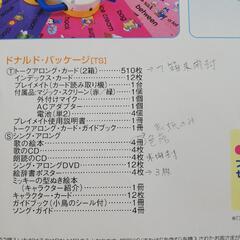 between
ドナルド・パッケージ[TS]
Ⓣトークアロング・カード(2箱)……510枚
インデックス・カード……12枚
プレイメイト(カード読み取り機)……1台
付属品:マジック・スクリーン(赤/緑)……1個
外付けマイク……1個
ACアダプター……1個
電池(単2)……4個
プレイメイト使用説明書……1冊
トークアロング・カード・ガイドブック……1冊
Ⓢシング・アロング
歌の絵本……4冊
歌のCD……4枚
朗読のCD……4枚
シング・アロングDVD……12枚
絵辞書ポスター……4枚
ミッキーの型ぬき絵本
(キャラクター紹介)……1冊
キャラクター・カード……12枚
ガイドブック(小鳥のシール付)……1冊
ソング・ガイド……1冊
→1箱未開封
未開封
→3枚